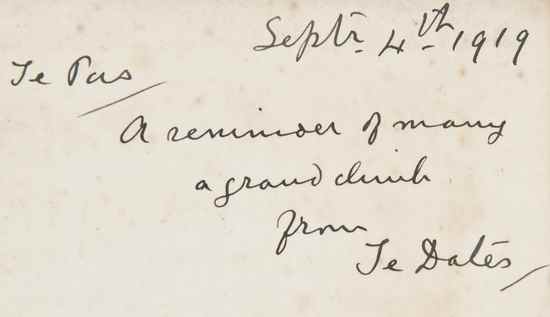 Septr. 4th 1919
Te Pas
A reminder of many
a grand climb
from
Te Dates